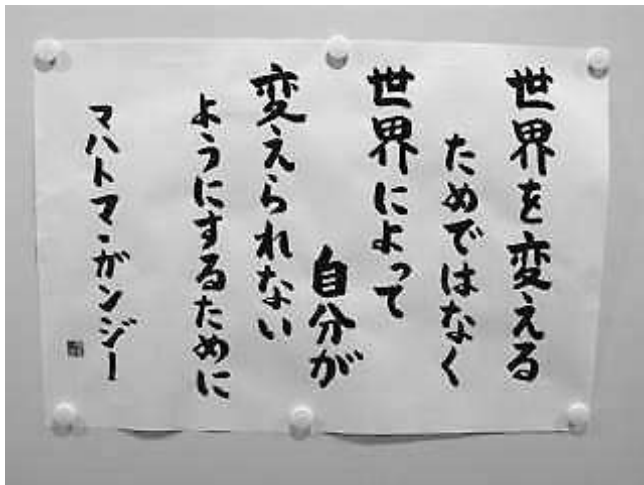 世界を変える
ためではなく
世界によって
自分が
変えられない
ようにするために
マハトマ・ガンジー